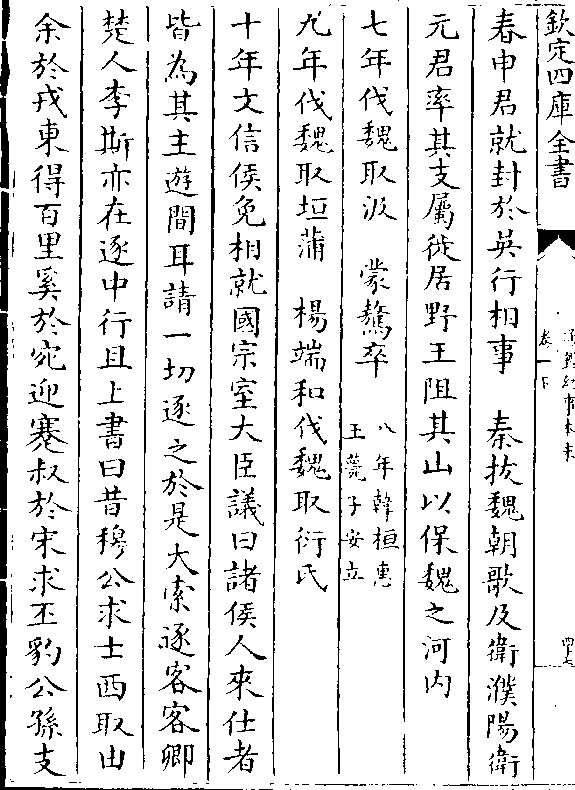 欽定四庫全書
通鑑紀事本末
卷一下
四十七
春申君就封於英行相事　秦拔魏朝歌及衛濮陽衛
元君率其支屬徙居野王阻其山以保魏之河内
七年伐魏取汲　蒙驁卒　八年韓桓惠
王薨子安立
九年伐魏取垣蒲　楊端和伐魏取衍氏
十年文信侯免相就國宗室大臣議曰諸侯人來仕者
皆為其主遊間耳請一切逐之於是大索逐客客卿
楚人李斯亦在逐中行且上書曰昔穆公求士西取由
余於戎東得百里奚於宛迎蹇叔於宋求丕豹公孫支